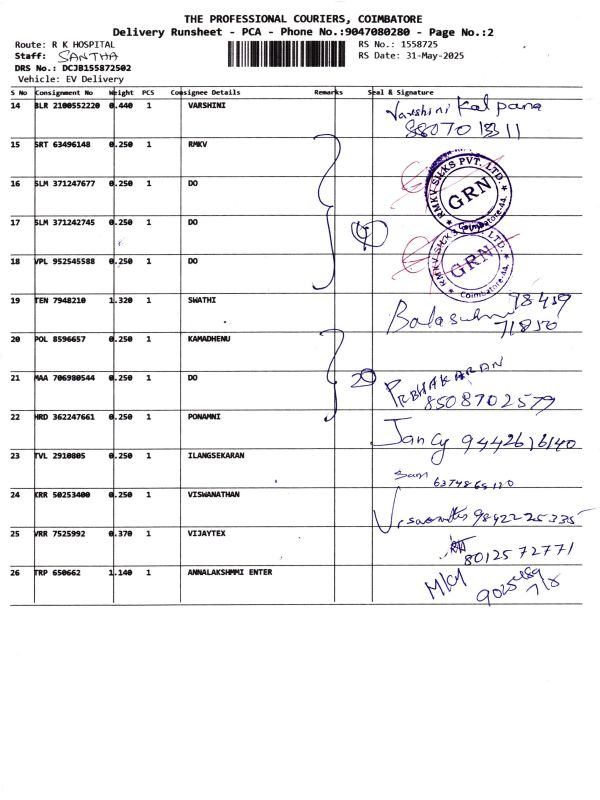 THE PROFESSIONAL COURIERS, COIMBATORE
Delivery Runsheet - PCA - Phone No.:9047080280 - Page No.:2
Route: R K HOSPITAL
Staff: SANTHA
DRS No.: DCJB155872502
Vehicle: EV Delivery
RS No.: 1558725
RS Date: 31-May-2025
S No Consignment No Weight PCS Consignee Details Remarks Seal & Signature
14 BLR 2100552220 0.440 1 VARSHINI Varshini Kalpana
15 SRT 63496148 0.250 1 RMKV
16 SLM 371247677 0.250 1 DO
RMKV SILKS PVT. LTD. GRN Coimbatore-44.
17 SLM 371242745 0.250 1 DO 4
18 VPL 952545588 0.250 1 DO
RMKV SILKS LTD. GRN Coimbatore-44.
19 TEN 7948210 1.320 1 SWATHI
20 POL 8596657 0.250 1 KAMADHENU
21 MAA 706980544 0.250 1 DO PRBHAKARAN
8508702579
22 HRD 362247661 0.250 1 PONAMNI Jancy
23 TVL 2910805 0.250 1 ILANGSEKARAN
24 KRR 50253400 0.250 1 VISWANATHAN 9842225335
25 VRR 7525992 0.370 1 VIJAYTEX
8012572771
26 TRP 650662 1.140 1 ANNALAKSHMMI ENTER